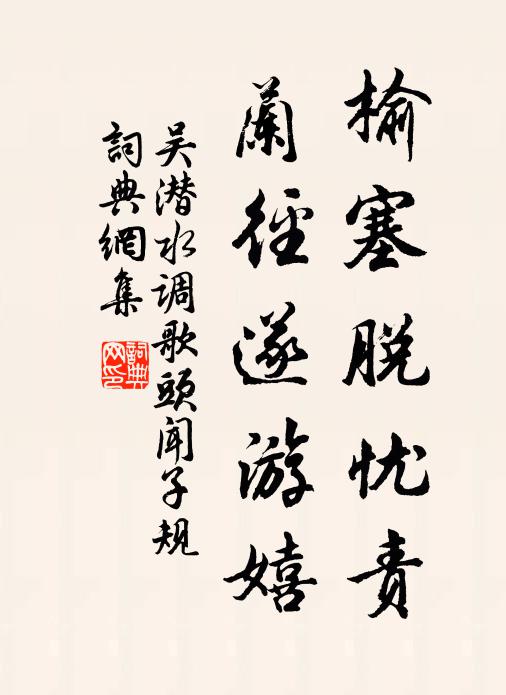 榆塞脱忧责
兰径遂游嬉
吴潜水调歌頭闻子规
詞典網集
詞典网印